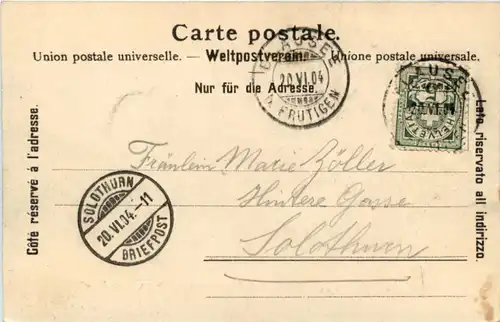 Carte postale.
Union postale universelle. — Weltpostverein. — Unione postale universale.
Nur für die Adresse.
Côté réservé à l'adresse.
Lato riservato all indirizzo.
BLAUSEE
20.VI.04
b. FRUTIGEN
HELVETIA
Fräulein Marie Zöller
Hintere Gasse
Solothurn
SOLOTHURN
20.VI.04.-11
BRIEFPOST